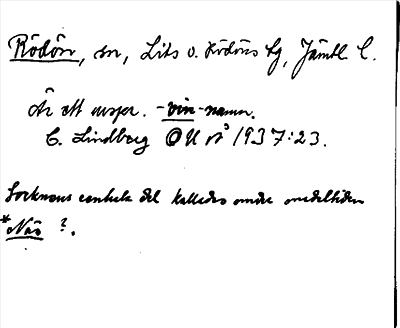 Rödön, sn, Lits o. Rödöns tg, Jämtl. l.
Är ett urspr. -vin-namn.
C. Lindberg OUÅ 1937:23.
Socknens centrala del kallades under medeltiden
*Näs ?.